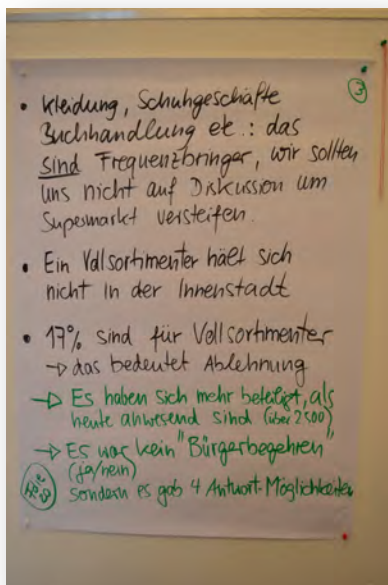 ③
• Kleidung, Schuhgeschäfte
Buchhandlung etc.: das
sind Frequenzbringer, wir sollten
uns nicht auf Diskussion um
Supermarkt versteifen.
• Ein Vollsortimenter hält sich
nicht in der Innenstadt
• 17% sind für Vollsortimenter
→ das bedeutet Ablehnung
→ Es haben sich mehr beteiligt, als
heute anwesend sind (über 2500)
→ Es war kein "Bürgerbegehren"
(ja/nein)
sondern es gab 4 Antwort-Möglichkeiten
Folie